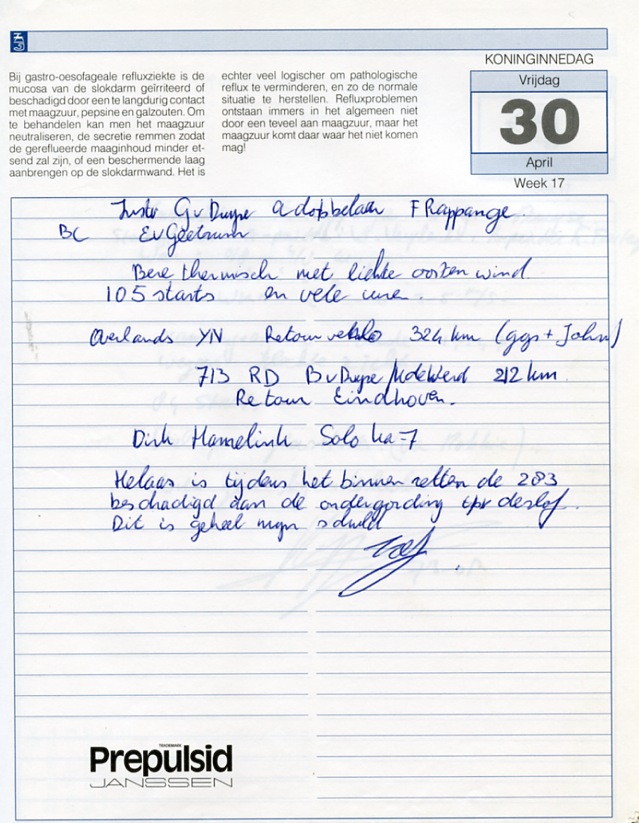 Bij gastro-oesofageale refluxziekte is de
mucosa van de slokdarm geïrriteerd of
beschadigd door een te langdurig contact
met maagzuur, pepsine en galzouten. Om
te behandelen kan men het maagzuur
neutraliseren, de secretie remmen zodat
de gereflueerde maaginhoud minder et-
send zal zijn, of een beschermende laag
aanbrengen op de slokdarmwand. Het is
echter veel logischer om pathologische
reflux te verminderen, en zo de normale
situatie te herstellen. Refluxproblemen
ontstaan immers in het algemeen niet
door een teveel aan maagzuur, maar het
maagzuur komt daar waar het niet komen
mag!
KONINGINNEDAG
Vrijdag
30
April
Week 17
Instr G v Duype A dopbelaer F Rappange.
BC E v Geebruin
Bere thermisch met lichte oosten wind.
105 starts en vele uren.
Overlands YN Retour venlo 324 km (ggs + John)
713 RD B v Duype / 212 km.
Retour Eindhoven.
Dirk Hamelink Solo ka-7
Helaas is tijdens het binnen zetten de 283
beschadigd aan de ondergording tpv de slof.
Dit is geheel mijn schuld
TRADEMARK
Prepulsid
JANSSEN